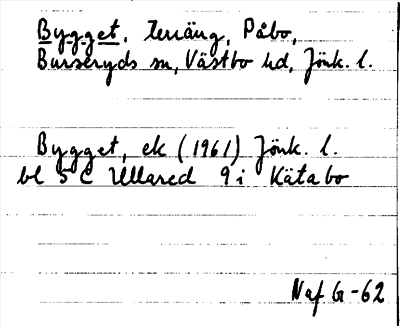 Bygget, Terräng, Påbo,
Burseryds sn, Västbo hd, Jönk. l.
Bygget, ek (1961) Jönk. l.
bl 5 C Ullared 9 i Kätabo
Naf G-62